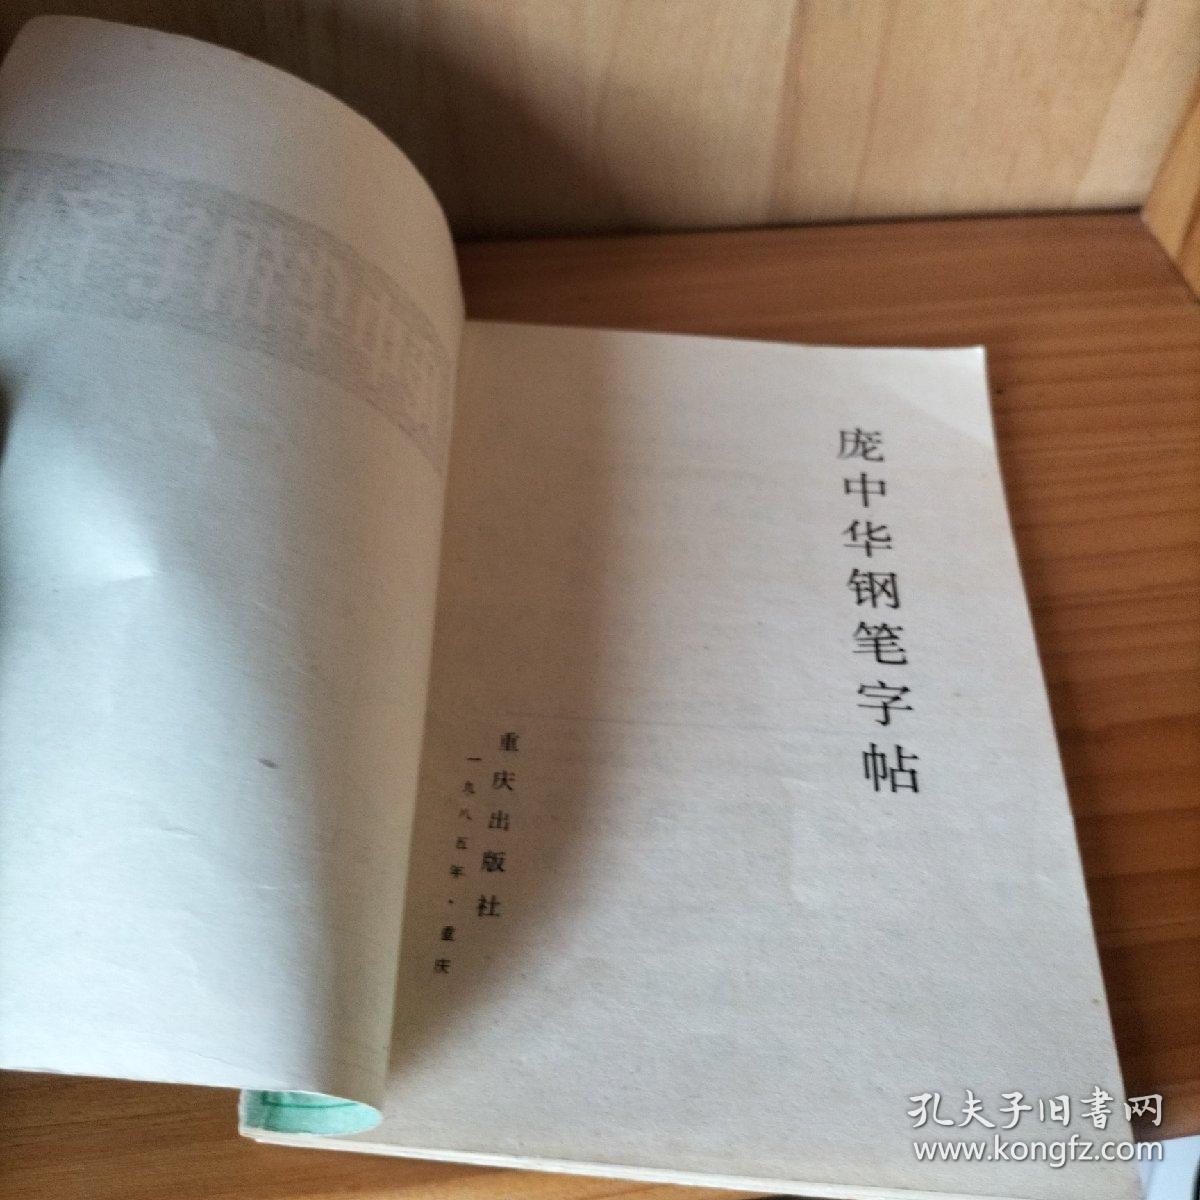 庞中华钢笔字帖
重庆出版社
一九八五年·重庆
孔夫子旧书网
www.kongfz.com